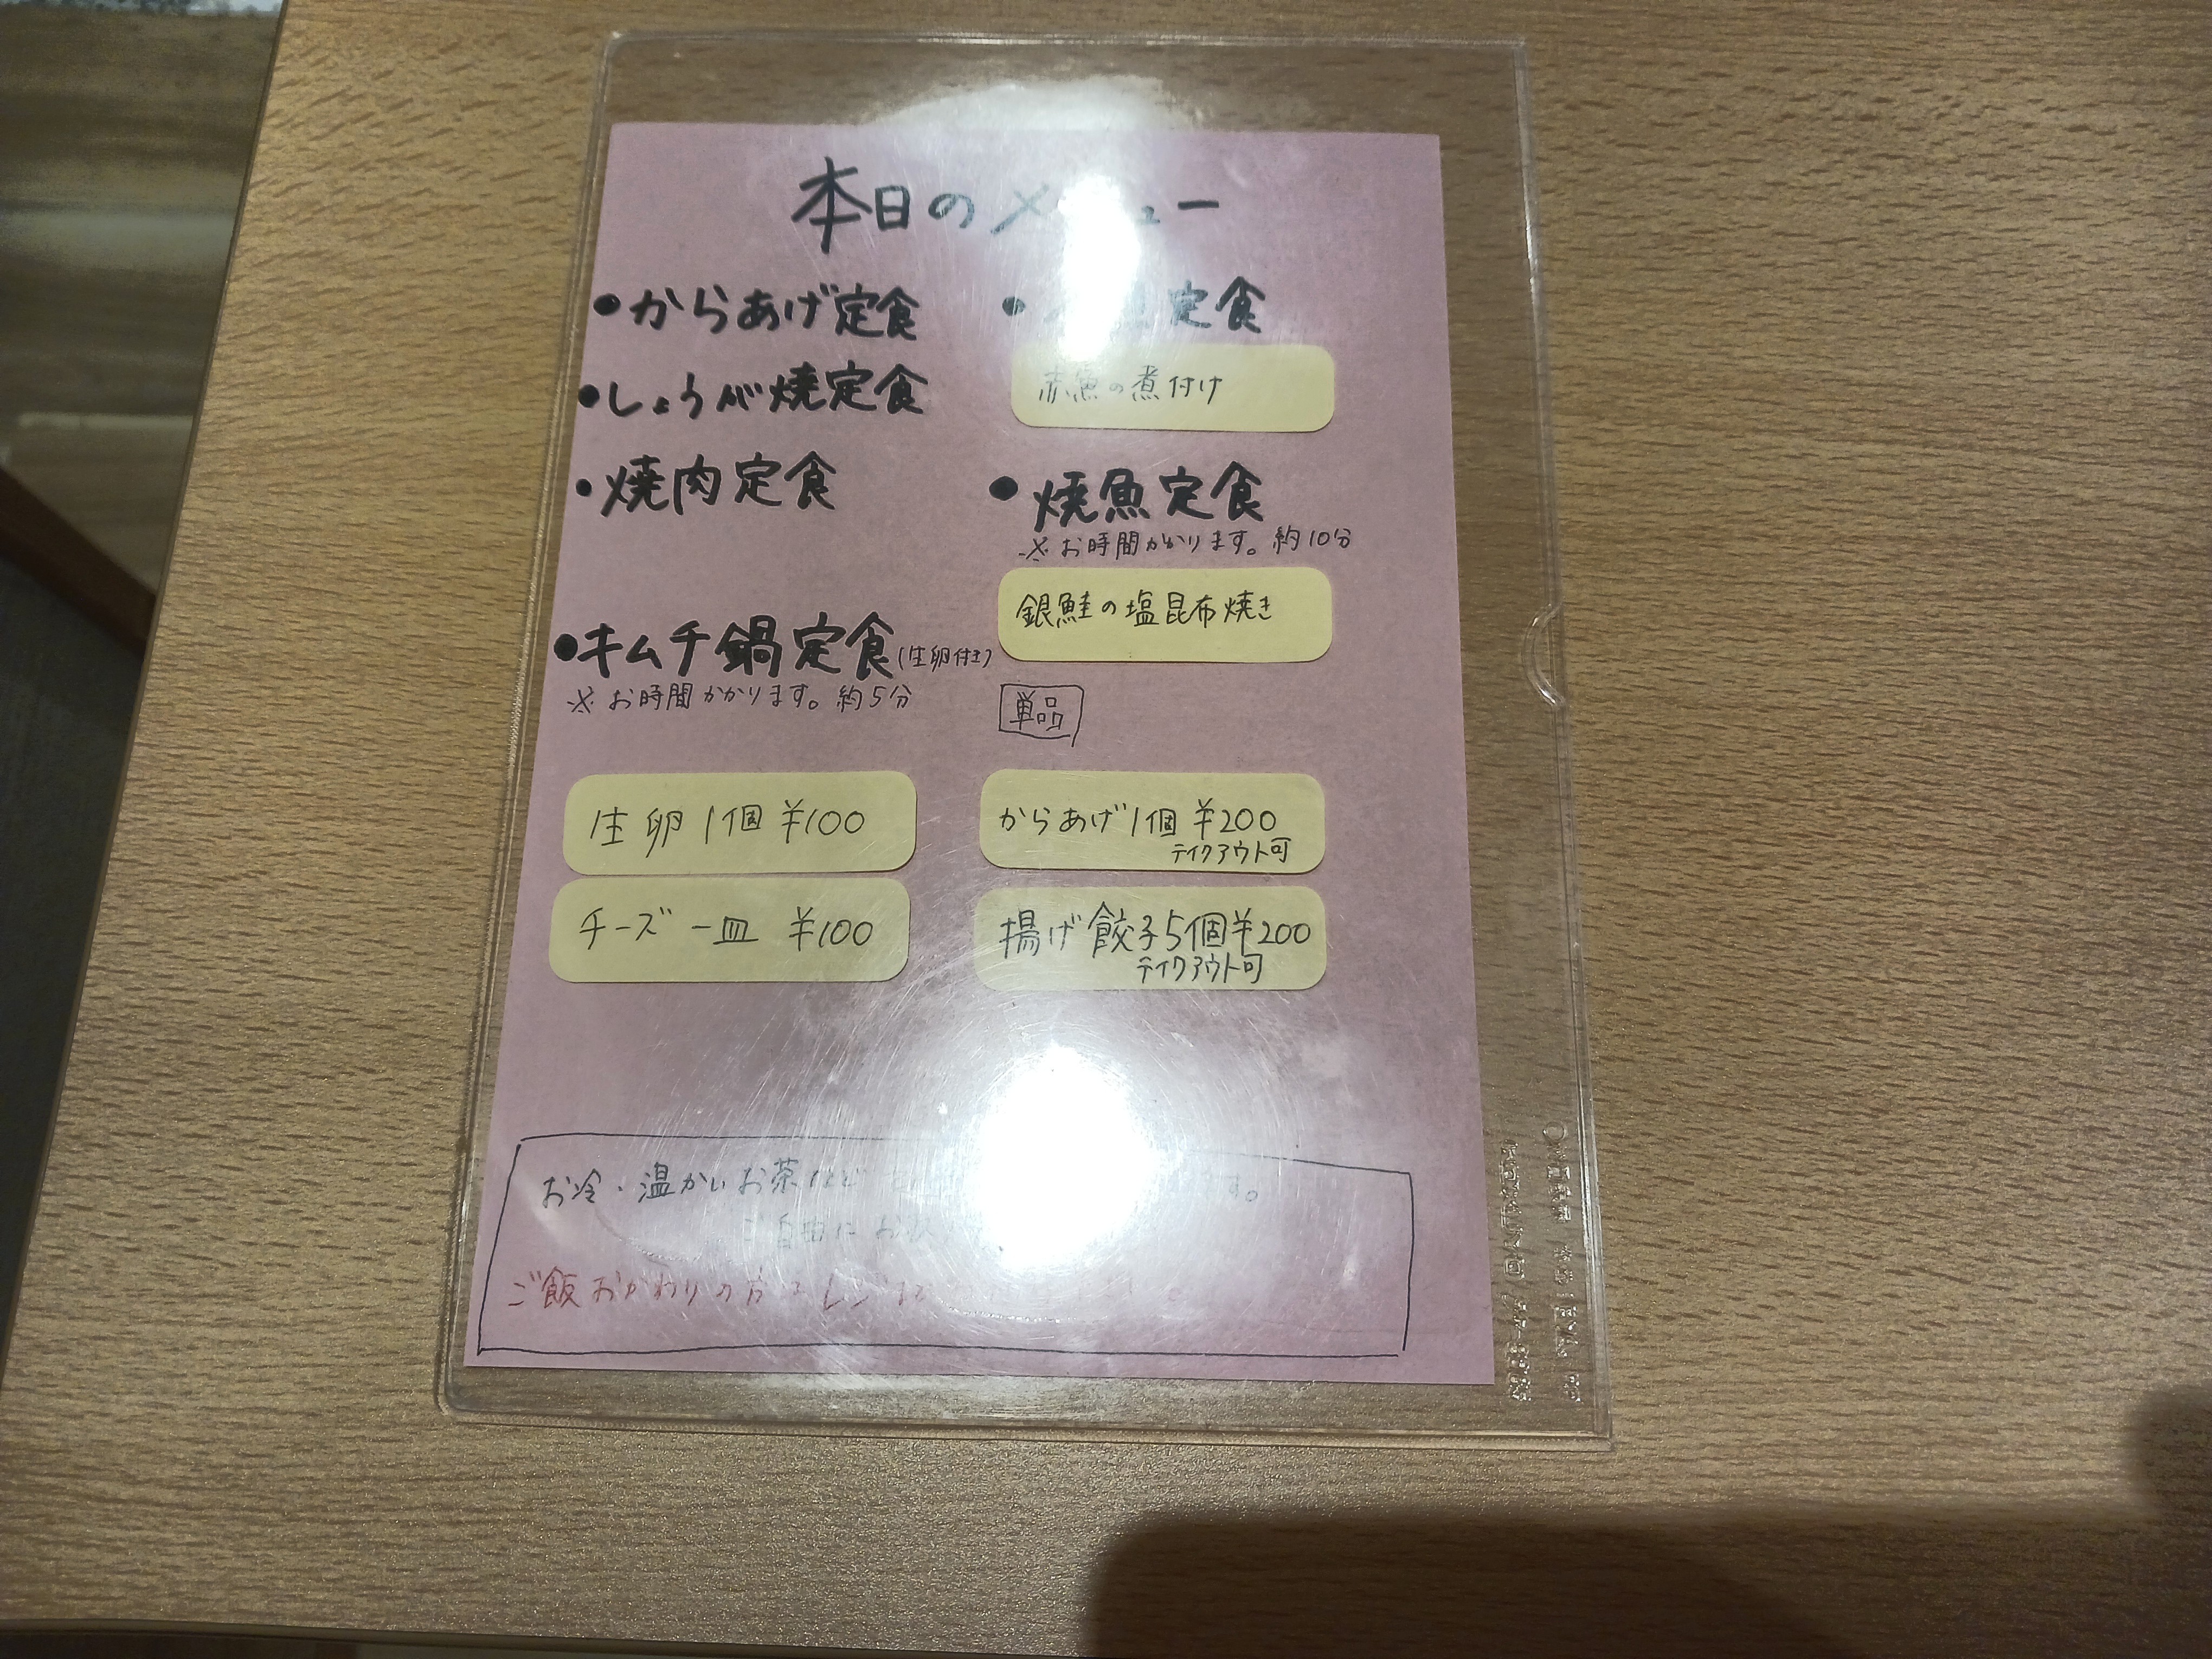 本日のメニュー
・からあげ定食
・しょうが焼定食
・焼肉定食
・キムチ鍋定食(生卵付き)
※お時間かかります。約5分
生卵1個 ¥100
チーズ一皿 ¥100
定食
赤魚の煮付け
・焼魚定食
※お時間かかります。約10分
銀鮭の塩昆布焼き
単品
からあげ1個 ¥200
テイクアウト可
揚げ餃子5個¥200
テイクアウト可
お冷・温かいお茶など
ご自由にお
ご飯おかわりの方は